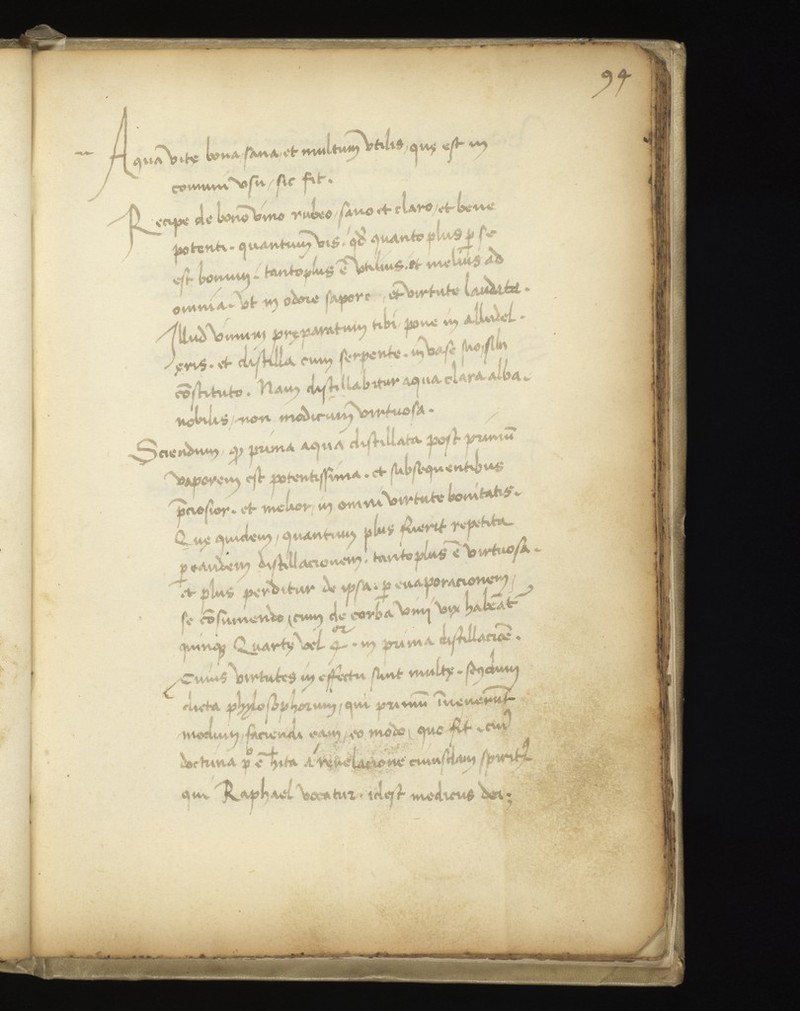 94
Aqua vite bona, sana, et multum vtilis, quę est in
comuni vsu, sic fit.
Recipe de bono vino rubeo, sano et claro, et bene
potenti. quantum vis. qd̄ quanto plus p̱ se
est bonum. tantoplus ē vtilius. et melius ad
omnia. vt in odore sapore, et virtute laudata.
Illud vinum pręparatum tibi pone in alludel.
et distilla cum serpente. in vase suo
cōstituto. Nam distillabitur aqua clara alba.
nobilis, non modicum virtuosa.
Sciendum, ꝙ prima aqua distillata post primū
vaporem est potentissima. et subsequentibus
p̄ciosior. et melior, in omni virtute bonitatis.
Quę quidem, quantum plus fuerit repetita
p̱ eandem distillacionem. tantoplus ē virtuosa.
et plus perditur de ipsa. p̱ euaporacionem,
se cōsumendo, cum de vini vix
quinqꝫ Quartę vel 4. in prima distillaciōe.
Cuius virtutes in effectu sunt multę. secdum
dicta phylosophorum, qui primū inuenerūt
modum faciendi eam, eo modo, que fit.
doctrina ē hita a reuelacione cuiusdam spiritꝰ
qui Raphael vocatur. idest medicus dei.